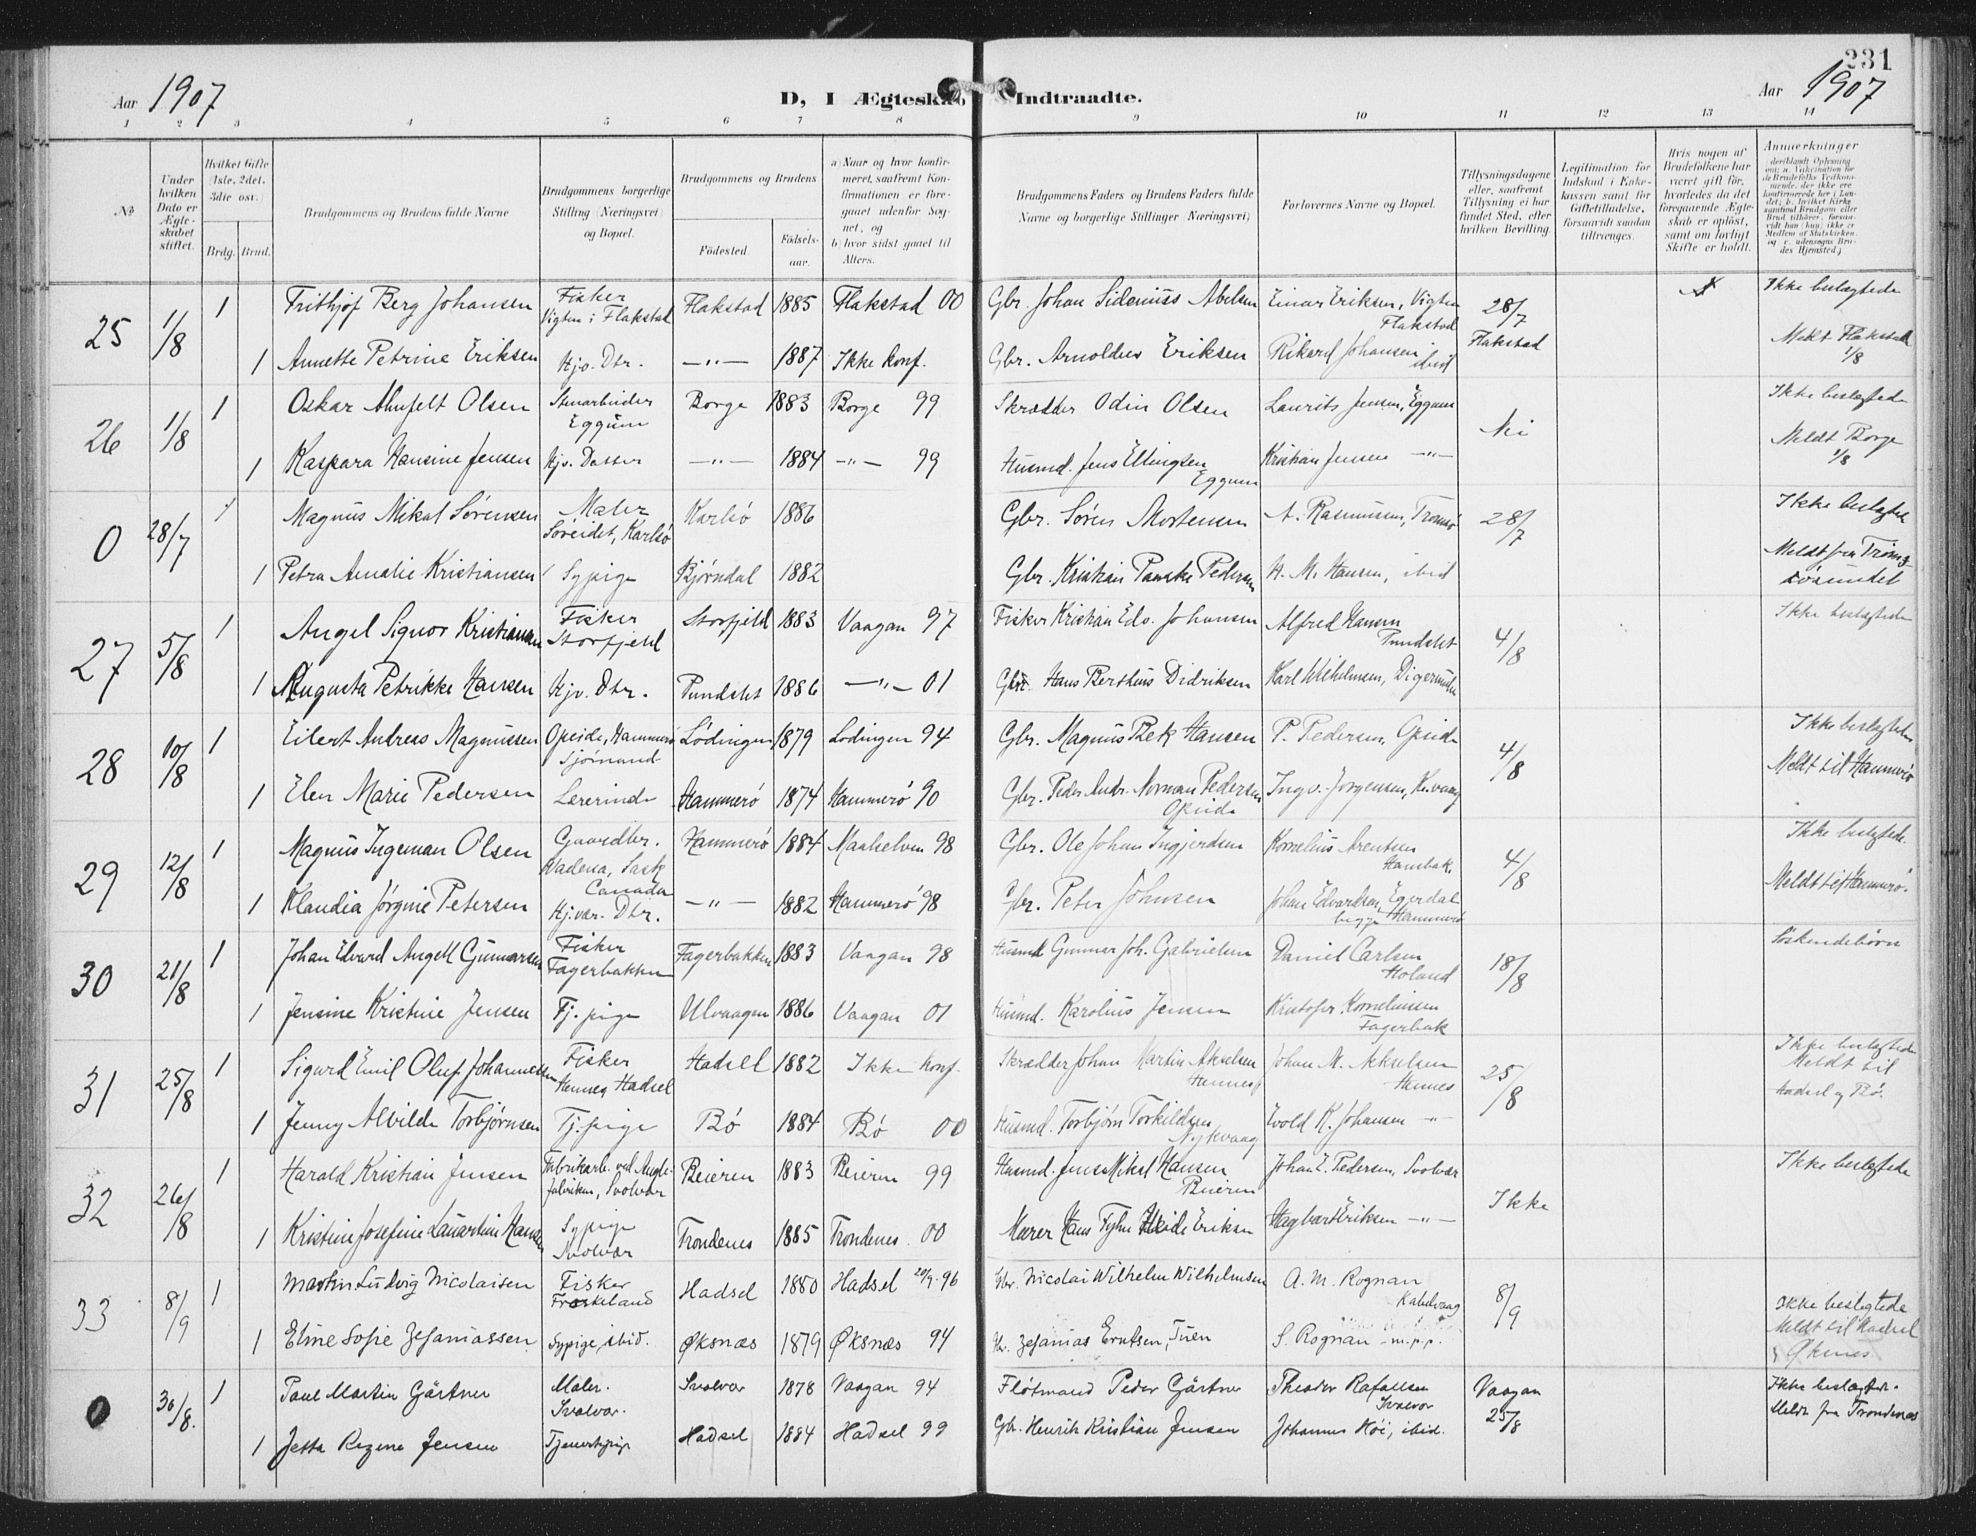 231
Aar 1907
D, I Ægteskab Indtraadte.
Aar 1907
1 2 3 4 5 6 7 8 9 10 11 12 13 14
No
Under hvilken Dato er Ægteskabet stiftet.
Hvilket Gifte (1ste, 2det, 3die osv.)
Brdg. Brud.
Brudgommens og Brudens fulde Navne
Brudgommens borgerlige Stilling (Næringsvei) og Bopæl.
Brudgommens og Brudens
Födested.
Födsels-aar.
a) Naar og hvor konfirmeret, saafremt Konfirmationen er foregaaet udenfor Sognet, og
b) hvor sidst gaaet til Alters.
Brudgommens Faders og Brudens Faders fulde Navne og borgerlige Stillinger Næringsvei)
Forlovernes Navne og Bopæl.
Tillysningsdagene eller, saafremt Tillysning ei har fundet Sted, efter hvilken Bevilling.
Legitimation for Indskud i Enkekassen samt for Giftetilladelse, forsaavidt saadan tiltrænges.
Hvis nogen af Brudefolkene har været gift för, hvorledes da det foregaaende Ægteskab er oplöst, samt om lovligt Skifte er holdt.
Anmærkninger
25 1/8 1 Frithjof Berg Johansen Fisker Vigten i Flakstad Flakstad 1885 Flakstad 00 Gbr. Johan Sidenius Abelsen Einar Eriksen, Vigten Flakstad 28/7 Flakstad Ikke beslægtede
1 Annette Petrine Eriksen Hjv. Dtr. —"— 1887 Ikke konf. Gbr. Arnoldus Eriksen Rikard Johansen ibid Meldt Flakstad 1/8
26 1/8 1 Oskar Ahnfelt Olsen Stenarbeider Eggum Borge 1883 Borge 99 Skrædder Odin Olsen Laurits Jensen, Eggum Nei Ikke beslægtede
1 Kaspara Hansine Jensen Hjv. Datter —"— 1884 —"— 99 Husmd. Jens Ellingsen Eggum Kristian Jensen —"— Meldt Borge 1/8
0 28/7 1 Magnus Mikal Sørensen Maler Søreidet, Karlsö Karlsö 1886 Gbr. Sören Mortensen A. Rasmussen, Tromsö 28/7 Ikke beslægtede
1 Petra Amalie Kristiansen Sypige Bjørndal 1882 Gbr. Kristian Panske Pedersen H. M. Hansen, ibid Meldt fra Tromsösundet
27 5/8 1 Angel Signor Kristiansen Fisker Storfjeld Storfjeld 1883 Vaagan 97 Fisker Kristian Edv. Johansen Alfred Hansen Pundslet 4/8 Ikke beslægtede
1 Augusta Petrikke Hansen Hjv. Dtr. Pundslet 1886 —"— 01 Gbr. Hans Berthius Didriksen Karl Wilhelmsen, Digermulen
28 10/8 1 Eilert Andreas Magnussen Opeide, Hammerö Sjömand Lödingen 1879 Lödingen 94 Gbr. Magnus Bek Hansen P. Pedersen, Opeide 4/8 Ikke beslægtede
1 Elen Marie Pedersen Lærerinde Hammerö 1874 Hammerö 90 Gbr. Peder Andr. Norman Pedersen Opeide Ingv. Jorgensen, Meldt til Hammerö
29 12/8 1 Magnus Ingeman Olsen Gaardbr. Wadena, Sask Canada Hammerö 1884 Maalselven 98 Gbr. Ole Johan Ingjerdsen Kornelius Arentsen 4/8 Ikke beslægtede.
1 Klandia Jörgine Petersen Hj.vær. Dtr. —"— 1882 Hammerö 98 Gbr. Peter Johnsen Johan Edvardsen, Egerdal begge Hammerö Meldt til Hammerö.
30 21/8 1 Johan Edvard Angell Gunnarsen Fisker Fagerbakken Fagerbakken 1883 Vaagan 98 Husmd Gunner Joh. Gabrielsen Daniel Carlsen Holand 18/8 Söskendebörn
1 Jensine Kristine Jensen Tj. pige Ulvaagen 1886 Vaagan 01 Husmd. Karolius Jensen Kristofer Korneliussen Fagerbak
31 25/8 1 Sigurd Emil Oluf Johannessen Fisker Hennes Hadsel Hadsel 1882 Ikke konf. Skrædder Johan Martin Akselsen Hennes Johan M. Akselsen Hennes 25/8 Ikke beslægtede Meldt til Hadsel og Bö.
1 Jenny Alvilde Torbjørnsen Tj. pige Bö 1884 Bö 00 Husmd. Torbjörn Torkildsen Nykvaag Evold K. Johansen —"—
32 26/8 1 Harald Kristian Jensen Fabrikarb. ved Angle-fabriken, Svolvær Beieren 1883 Beieren 99 Husmd. Jens Mikal Hansen Beieren Johan E. Pedersen, Svolvær Ikke Ikke beslægtede
1 Kristine Josefine Lauartine Hansen Sypige Svolvær Trondenes 1885 Trondenes 00 Murer Hans Eriksen Hagbart Eriksen —"—
33 8/9 1 Martin Ludvig Nicolaisen Fisker Froskeland Hadsel 1880 Hadsel 20/9.96 Gbr. Nicolai Wilhelm Wilhelmsen A. M. Rognan Kabelvaag 8/9 Ikke beslegtede Meldt til Hadsel & Öksnes
1 Eline Sofie Zefaniassen Sypige, ibid. Øksnæs 1879 Øksnæs 94 Zefanias Erntsen, Tuen S. Rognan m.p.p.
0 30/8. 1 Paul Martin Gärtner Maler. Svolvær. Svolvær 1878 Vaagan 94 Fløtmand Peder Gärtner Theodor Rafaelsen Svolvær Vaagan 25/8 Ikke beslægtede. Meldt fra Trondenes
1 Jetta Regine Jensen Tjenestepige Hadsel 1884 Hadsel 99 Gb. Henrik Kristian Jensen Johannes Höi, ibid.